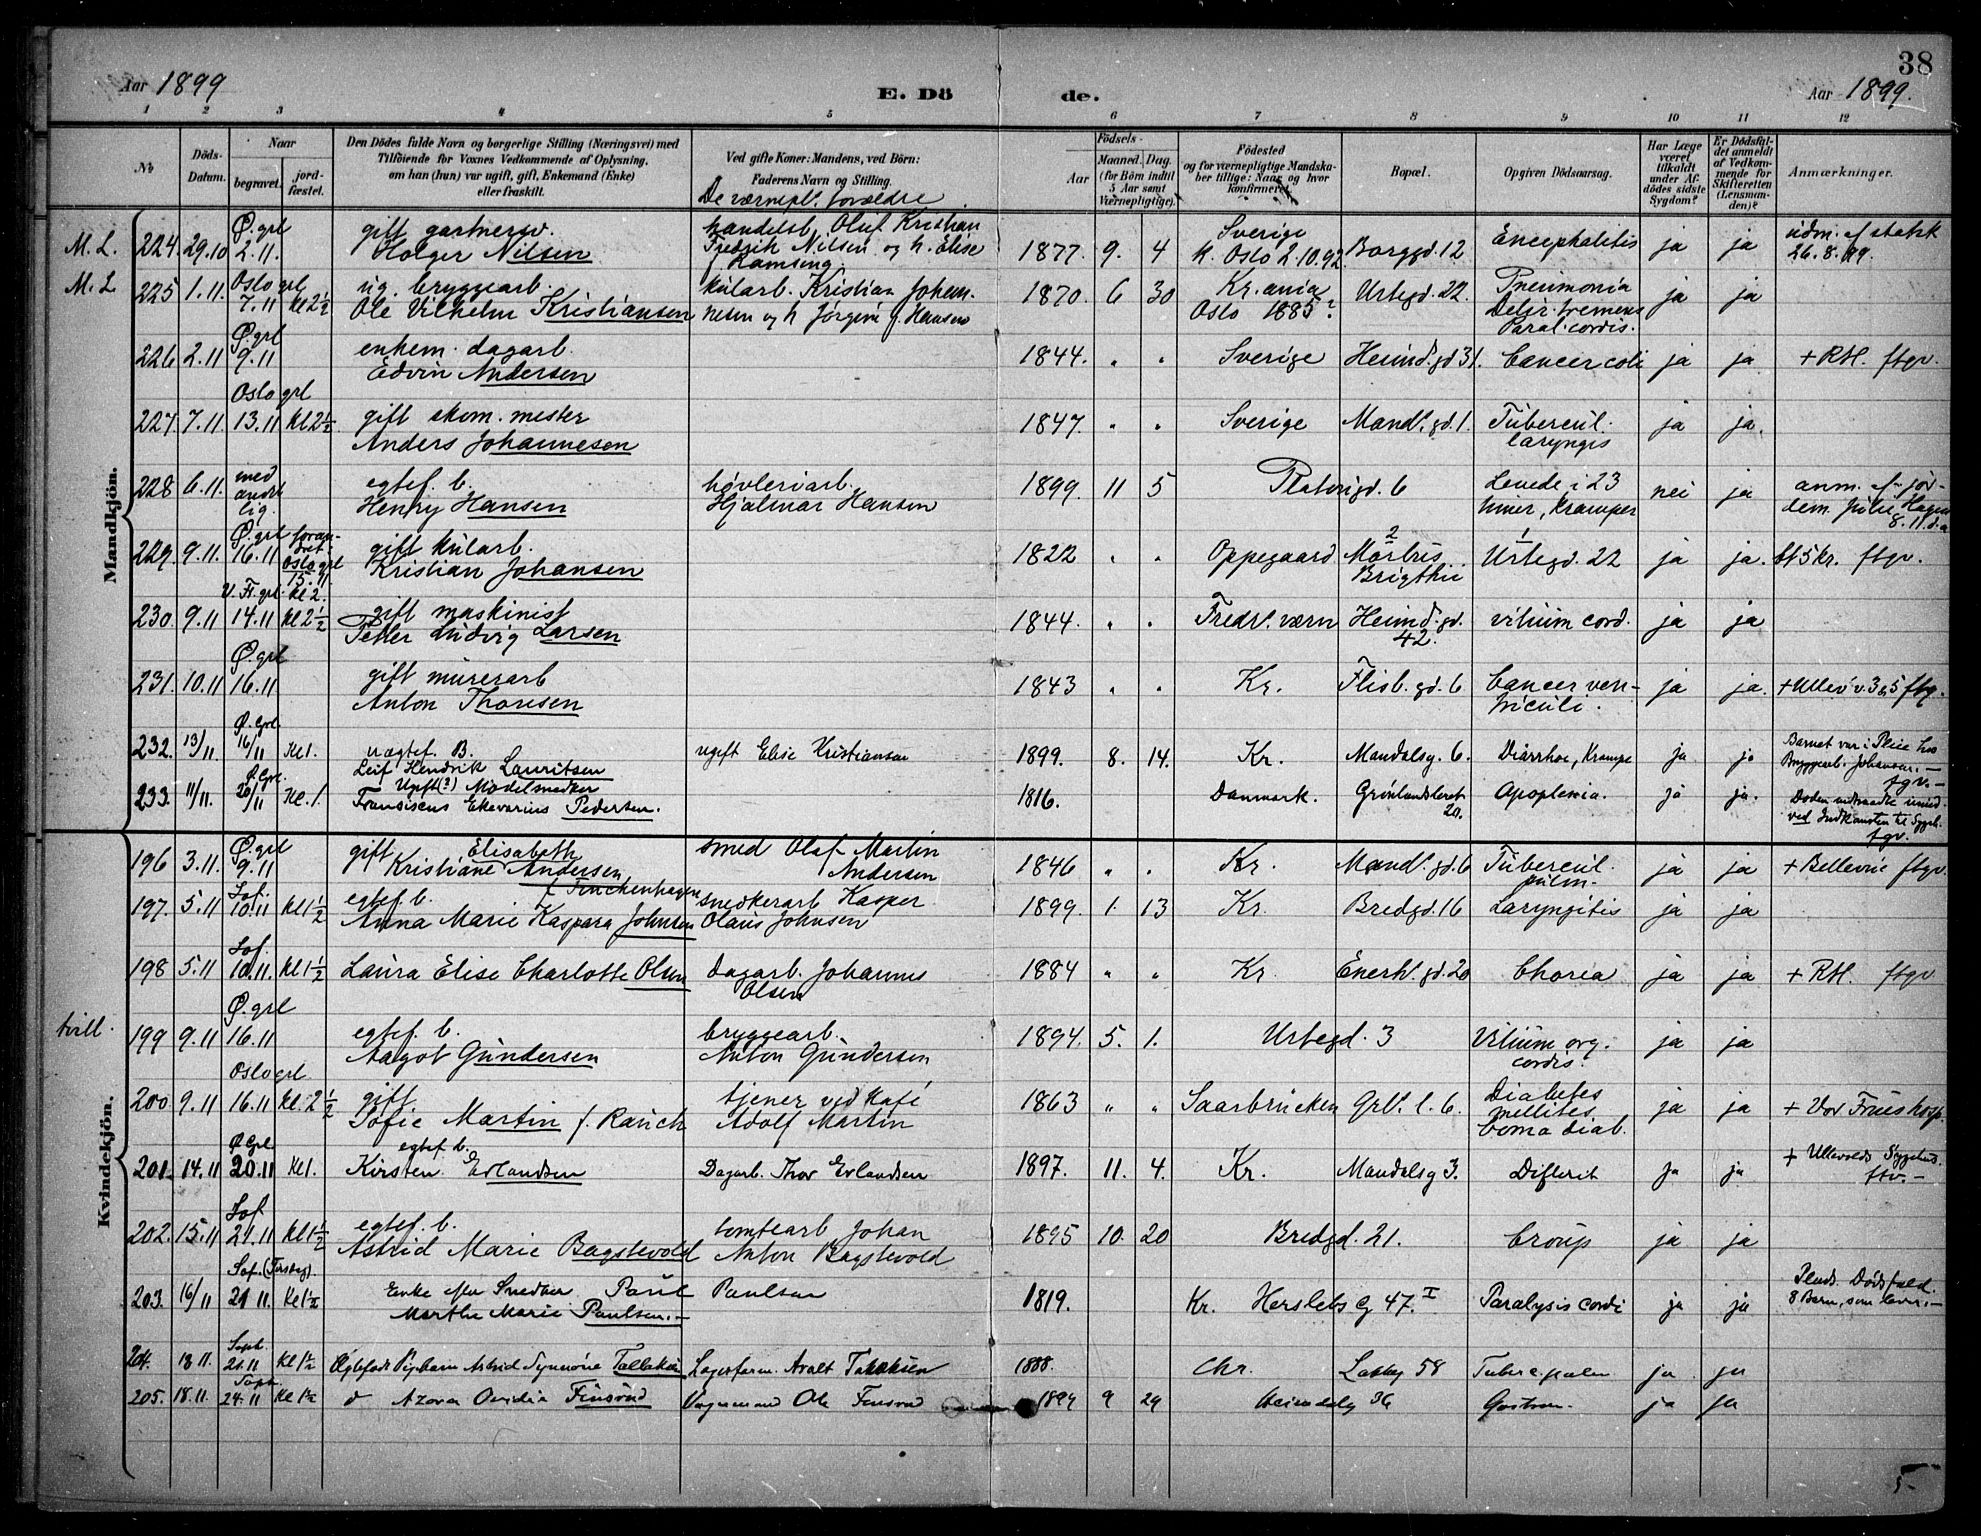 38
Aar 1899
E. Dö de.
Aar 1899.
1 2 3 4 5 6 7 8 9 10 11 12
No
Döds-Datum.
Naar
begravet.
jord-fæstet.
Den Dödes fulde Navn og borgerlige Stilling (Næringsvei) med
Tilföiende for Voxnes Vedkommende af Oplysning,
om han (hun) var ugift, gift, Enkemand (Enke)
eller fraskilt.
Ved gifte Koner: Mandens, ved Börn:
Faderens Navn og Stilling.
De værnepl. forældre.
Födsels-
Aar
Maaned. Dag.
(for Börn indtil
5 Aar samt
Værnepligtige).
Födested
og for værnepligtige Mandska-
ber tillige: Naar og hvor
Konfirmeret.
Bopæl.
Opgiven Dödsaarsag.
Har Læge
været
tilkaldt
under Af-
dödes sidste
Sygdom?
Er Dödsfal-
det anmeldt
af Vedkom-
mende for
Skifteretten
(Lensman-
den)?
Anmærkninger.
Mandkjön.
M. L. 224. 29.10 Ø. grl 2.11. gift gartnersv. Holger Nilsen handelsb. Oluf Kristian Fredrik Nilsen og h. Elise Ramsing 1877. 9. 4 Sverige K. Oslo 2.10.92. Borggd. 12 Encephalitis ja ja udm. af statsk 26.8.99.
M. L 225 1.11. Oslo grl 7.11 Kl 2½ ug. bryggearb. Ole Vilhelm Kristiansen kularb. Kristian Johan- nesen og h. Jörgine f. Hansen 1870. 6 30 Kr.ania Oslo 1885? Urtegd. 22. Pneumonia Delir. tremens Paral. cordis. ja ja
226 2.11 Ø. grl 9.11 enkem. dagarb. Edvin Andersen 1844. " " Sverige Heimd. gd 31. Cancer coli ja ja + RH. ftgv.
227. 7.11 Oslo grl 13.11 Kl 2½ gift skom. mester Anders Johannesen 1847. " " Sverige Mand. gd. 1. Tubercul. laryngis ja ja.
228 6.11. med andet lig. egtef. b. Henry Hansen høvleriarb. Hjalmar Hansen 1899. 11 5 Platousgd. 6 Levede i 23 timer, Kramper nei ja anm. af jor- dem. Julie Hagen 8.11. d.a
229. 9.11. Ø. grl 16.11 foran- dret Oslo grl 15.11 Kl 2. gift kularb. Kristian Johansen 1822 " " Oppegaard 2 Mortvis Brigthie 1 Urtegd. 22 ja ja. bt 5 kr. ftgv.
230. 9.11 V. Fr. grl 14.11 Kl 2½ gift maskinist Peder Ludvig Larsen 1844. " " Fredr. værn Heimd. gd. 42. vitium cord. ja ja
231. 10.11 Ø. grl 16.11 gift murerarb Anton Thoresen 1843 " " Kr. Flisb. gd. 6 Cancer ven- triculi. ja ja. + Ullev. v. 3 & 5 ftg.
232. 13/11 Ø. Grl. 16/11 Kl 1. uægtef. B. Leif Hendrik Lauritsen ugift Elise Kristiansen 1899. 8. 14. Kr. Mandalsg. 6. Diarrhoe, Krampe ja ja Barnet var i Pleie hos Bryggearb. Johansen. — ftgv. —
233. 11/11. Ø. Grl. 20/11 Kl. 1 Ugift (?) Modelsnedker Fransiscus Ekevarius Pedersen. 1816. Danmark. Grønlandsleret 20. Apoplexia. ja ja. Døden indtraadte umid. ved Indkomsten til Sygeh. ftgv.
Kvindekjön.
196 3.11. Ø. grl 9.11 gift Elisabeth Kristiane Andersen f. Finchenhagen smed Olaf Martin Andersen 1846 " " Kr. Mand. gd. 6 Tubercul. pulm. ja ja + Bellevue ftgv.
197. 5.11 Sof. 10.11 Kl 1½ egtef. b. Anna Marie Kaspara Johnsen snedkerarb Kasper Olaus Johnsen 1899. 1. 13 Kr. Bredgd. 16 Laryngitis ja ja
198 5.11 Sof. 10.11. Kl 1½ Laura Elise Charlotte Olsen Dagarb. Johannes Olsen 1884 " " Kr. Enerh. gd. 20 Chorea ja ja + RH. ftgv.
tvill. 199 9.11 Ø. grl 16.11 egtef. b. Aagot Gundersen bryggearb. Anton Gundersen 1894. 5. 1. Urtegd. 3 Vitium org. cordis. ja ja
200 9.11 Oslo grl 16.11 Kl. 2½ gift. Sofie Martin f. Rauch tjener ved Kafé Adolf Martin 1863 " " Saarbrücken Grl. l. 6. Diabetes mellites Coma diab. ja ja + Vor Frues hosp.
201. 14.11 Ø Grl 20.11 Kl 1. egtef. b. Kirsten Erlandsen Dagarb. Thor Erlandsen 1897. 11. 4. Kr. Mandalsg 3. Difterit ja ja + Ullevolds Sygehus. ftv. —
202. 15.11 Sof 21.11 Kl 1½ egtef. b. Astrid Marie Bagstevold tomtearb Johan Anton Bagstevold 1895 10. 20 Bredgd. 21. Croup ja ja
203. 16/11 Sof. (Tirsdag). 21 11. Kl 1½ Enke efter Snedker Paul Paulsen Marthe Marie Paulsen. — 1819. Kr. Herslebs G 47. I Paralysis cordi ja ja Pluds. Dødsfald. 8 Børn, som lever. —
204. 18 11. Soph. 21.11 Kl 1½ Egtefødt Pigebarn Astrid Synnöve Tallaksen Lagerform. Aralt Tallaksen 1888. Chr. Lakkg 58 Tuberc. pulm ja ja
205. 18.11. Soph. 24.11 Kl 1½ d Azora Ovidia Finsrud Vognmand Ole Finsrud 1899 9 29 Heimdalsg 36 Gastroen. ja ja
5-